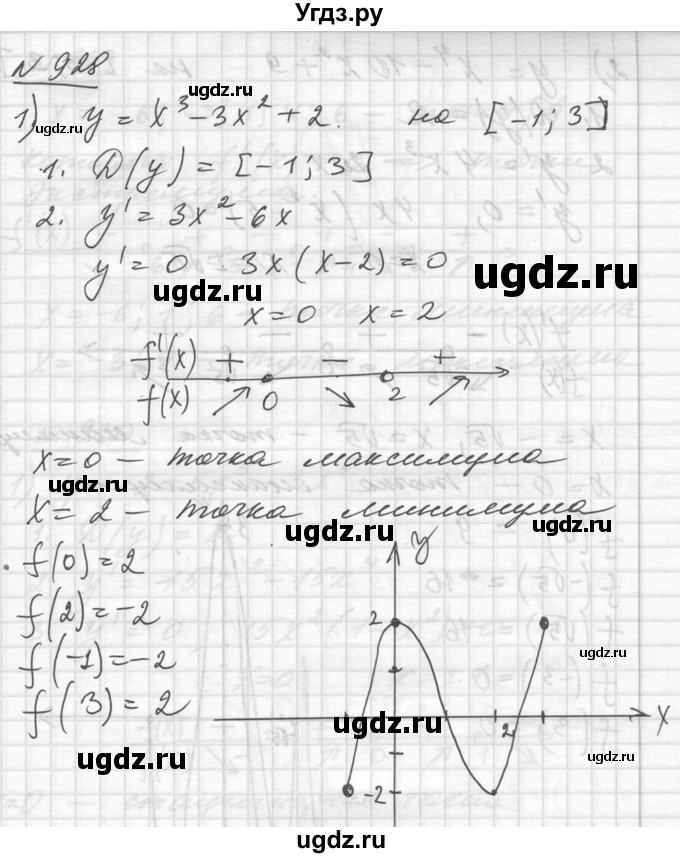 Угдз.ру
N 928
1) y = x³ - 3x² + 2. на [-1; 3]
1. D(y) = [-1; 3]
2. y' = 3x² - 6x
y' = 0 3x(x-2) = 0
x = 0 x = 2
f'(x) + - +
f(x) ↗ 0 ↘ 2 ↗
x = 0 – точка максимума
x = 2 – точка минимума
f(0) = 2
f(2) = -2
f(-1) = -2
f(3) = 2
y
2
2
x
-2
ugdz.ru
ugdz.ru
ugdz.ru
ugdz.ru
ugdz.ru
ugdz.ru
ugdz.ru
ugdz.ru
ugdz.ru
ugdz.ru
ugdz.ru
ugdz.ru